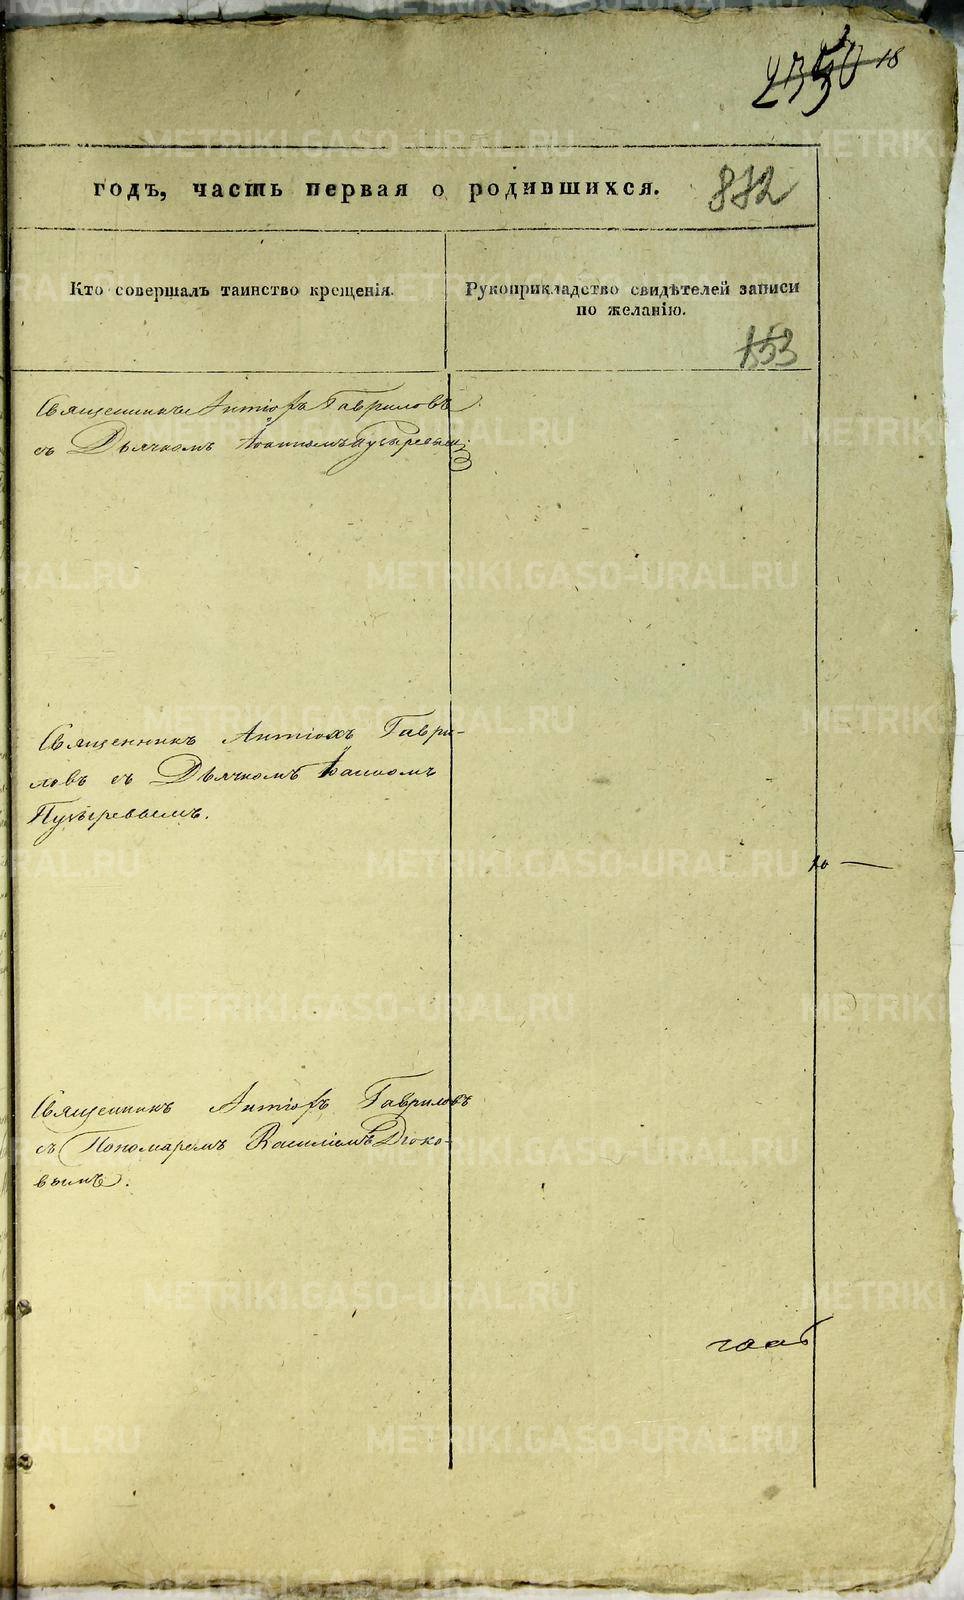 18
годъ, часть первая о родившихся.
872
Кто совершалъ таинство крещенія.
Рукоприкладство свидѣтелей записи
по желанію.
353
Священникъ Антіохъ Гавриловъ
съ Дьячкомъ Іоанномъ Пузыревым
Священникъ Антіохъ Гаври-
ловъ съ Дьячкомъ Іоанномъ
Пузыревымъ.
Священникъ Антіохъ Гавриловъ
съ Пономаремъ Василіемъ Дюко-
вымъ.
METRIKI.GASO-URAL.RU